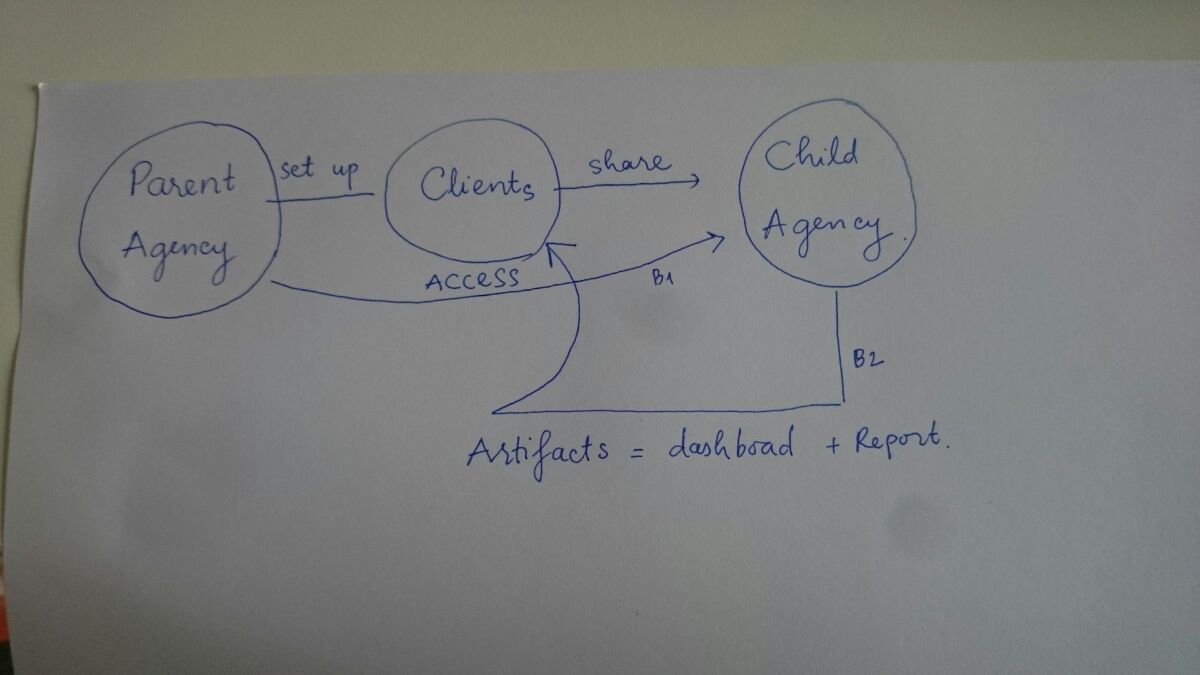 Parent
Agency
set up
Clients
share
Child
Agency.
ACCESS
B1
B2
Artifacts = dashboad + Report.